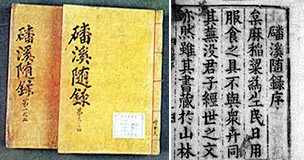 磻溪隨錄
磻溪隨錄
磻溪隨錄序
桒麻稻粱為生民日用
服食之具不與衆卉同
其蕪没君子經世之文
亦然雖其書藏於山林